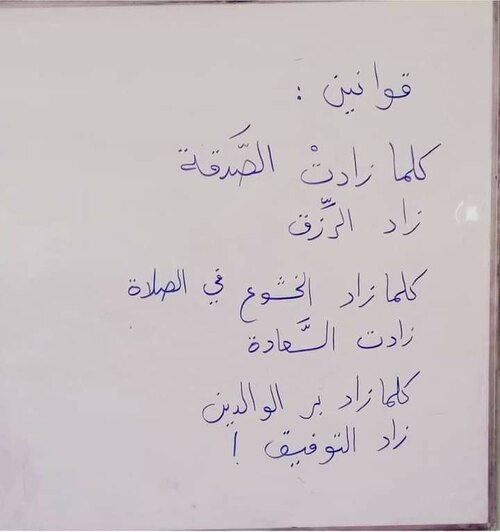 قوانين :
كلما زادتْ الصَّدقة
زاد الرِّزق
كلما زاد الخشوع في الصلاة
زادت السَّعادة
كلما زاد بر الوالدين
زاد التوفيق !